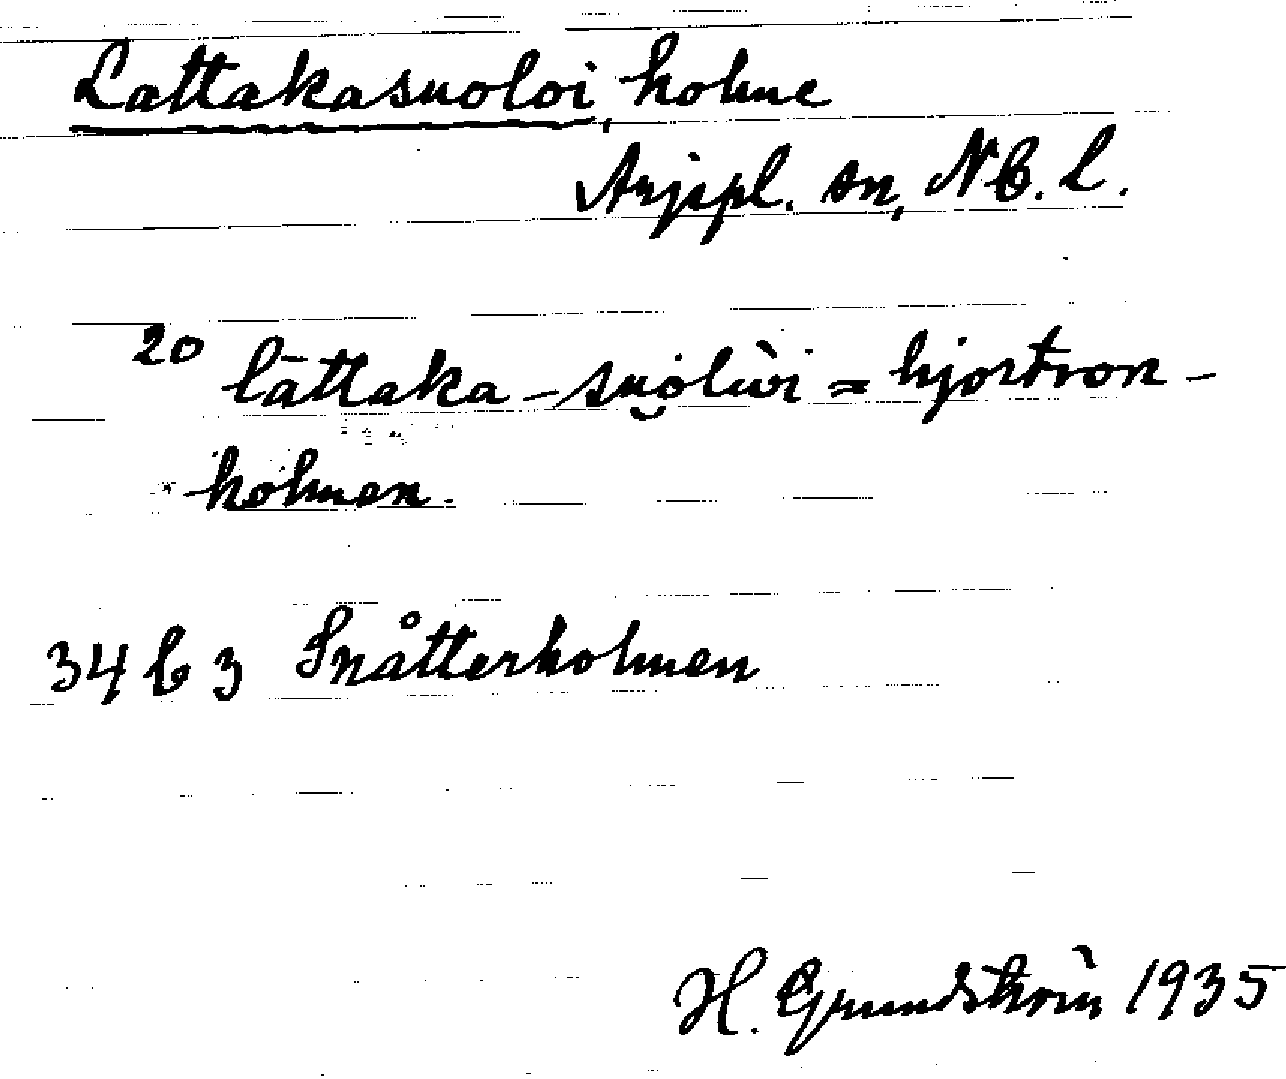 Lattakasuoloi, holme
Arjepl. sn, Nb. L.
20 lāttaka-suo̯lùi = hjortron-
holmen.
34 b 3 Snåtterholmen
H. Grundström 1935